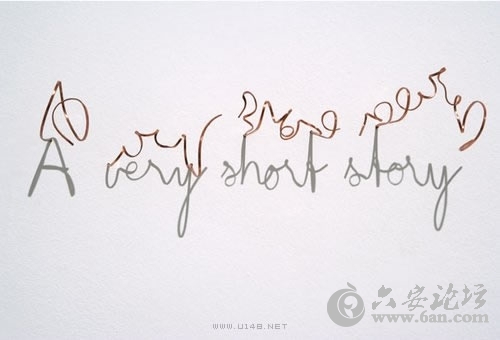 A very short story
六安论坛
www.6an.com
WWW.U148.NET